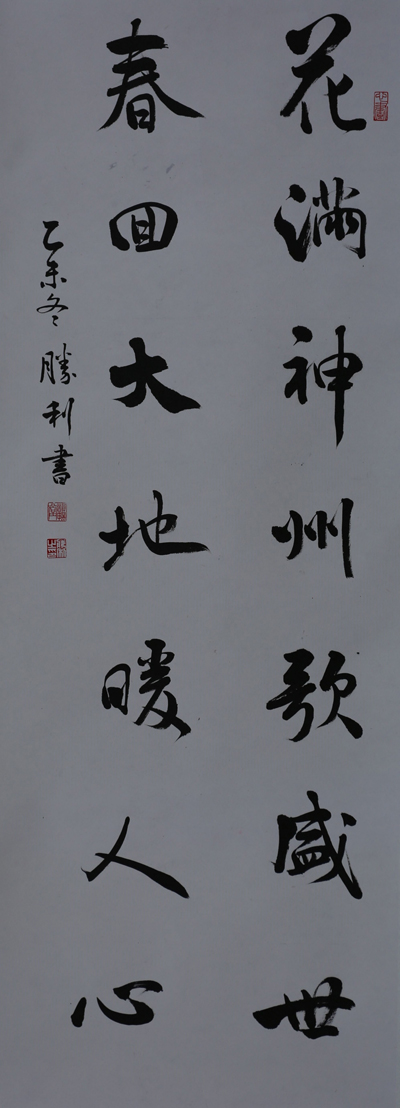 花满神州歌盛世
春回大地暖人心
乙未冬勝利書